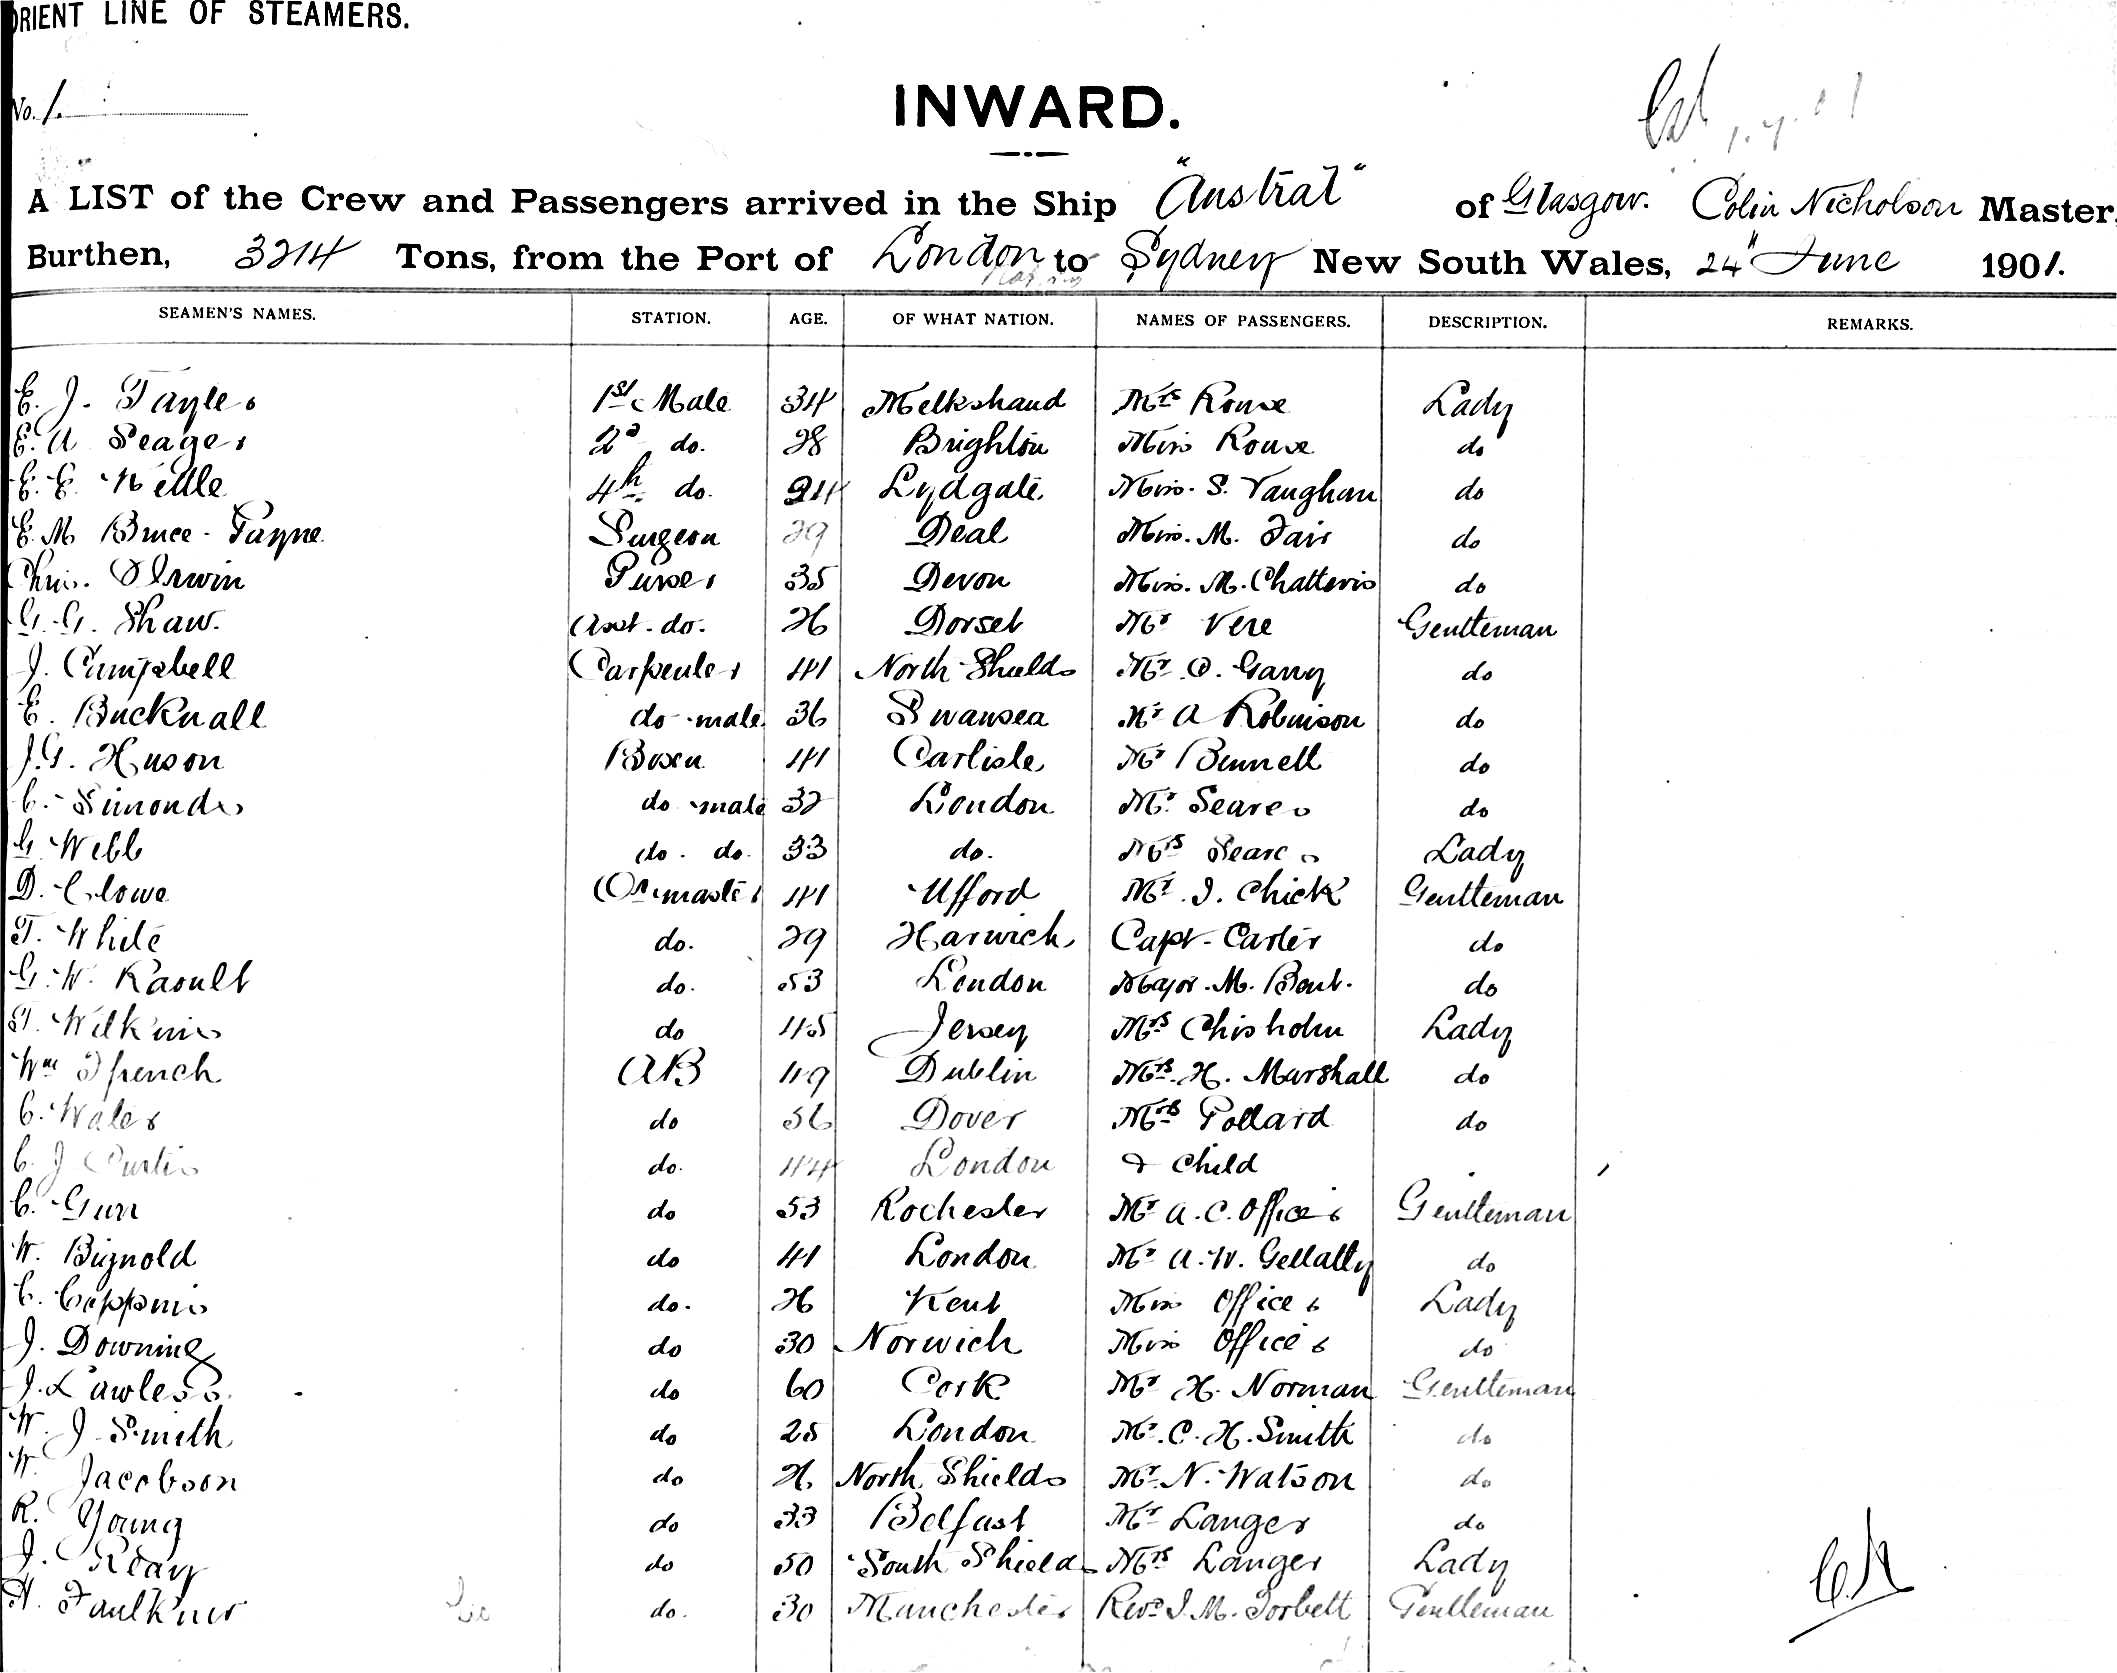 ORIENT LINE OF STEAMERS.
No. 1.
INWARD.
A LIST of the Crew and Passengers arrived in the Ship "Austral" of Glasgow. Colin Nicholson Master,
Burthen, 3214 Tons, from the Port of London to Sydney New South Wales, 24th June 1901.
SEAMEN'S NAMES. STATION. AGE. OF WHAT NATION. NAMES OF PASSENGERS. DESCRIPTION. REMARKS.
E. J. Tayler 1st Mate 34 Mrs Rouse Lady
E. A Seager 2d do. 28 Brighton Miss Rouse do
E. E. 4th do. 24 Lydgate Miss. S. Vaughan do
E. M Bruce-Payne Surgeon 29 Deal Miss. M. Fair do
Chris. Irwin Purser 35 Devon Miss. M. Chatteris do
G. G. Shaw. Asst. do. 26 Dorset Mr Vere Gentleman
J. Campbell Carpenter 41 North Shields Mr. O. Garry do
E. Bucknall do mate 36 Swansea Mr A Robinson do
J. G. Huson Bosn 41 Carlisle Mr Bennell do
C. Simonds do mate 32 London Mr. Seares do
G Webb do. do. 33 do. Mrs Seares Lady
D. Clowe Qr master 41 Ufford Mr. J. Chick Gentleman
T. White do. 29 Harwich Capt. Carter do
G. W. Raoult do. 53 London Major. M. Bent. do
T. Wilkins do 45 Jersey Mrs Chisholm Lady
Wm Ffrench AB 49 Dublin Mrs. H. Marshall do
C. Wales do 56 Dover Mrs Pollard do
C. J Curtis do. 44 London & Child
C. Gunn do 53 Rochester Mr A. C. Officer Gentleman
W. Bignold do 41 London Mr A. W. Gellatly do
C. Coppins do. 26 Kent Miss Officer Lady
J. Downing do 30 Norwich Miss Officer do
J. Lawless. do 60 Cork Mr H. Norman Gentleman
W. J Smith do 25 London Mr. C. H. Smith do
W. Jacobson do 26 North Shields Mr. N. Watson do
R. Young do 33 Belfast Mr Langer do
J. Reay do 50 South Shields Mrs Langer Lady
H. Faulkner do. 30 Manchester Revd J. M. Torbett Gentleman